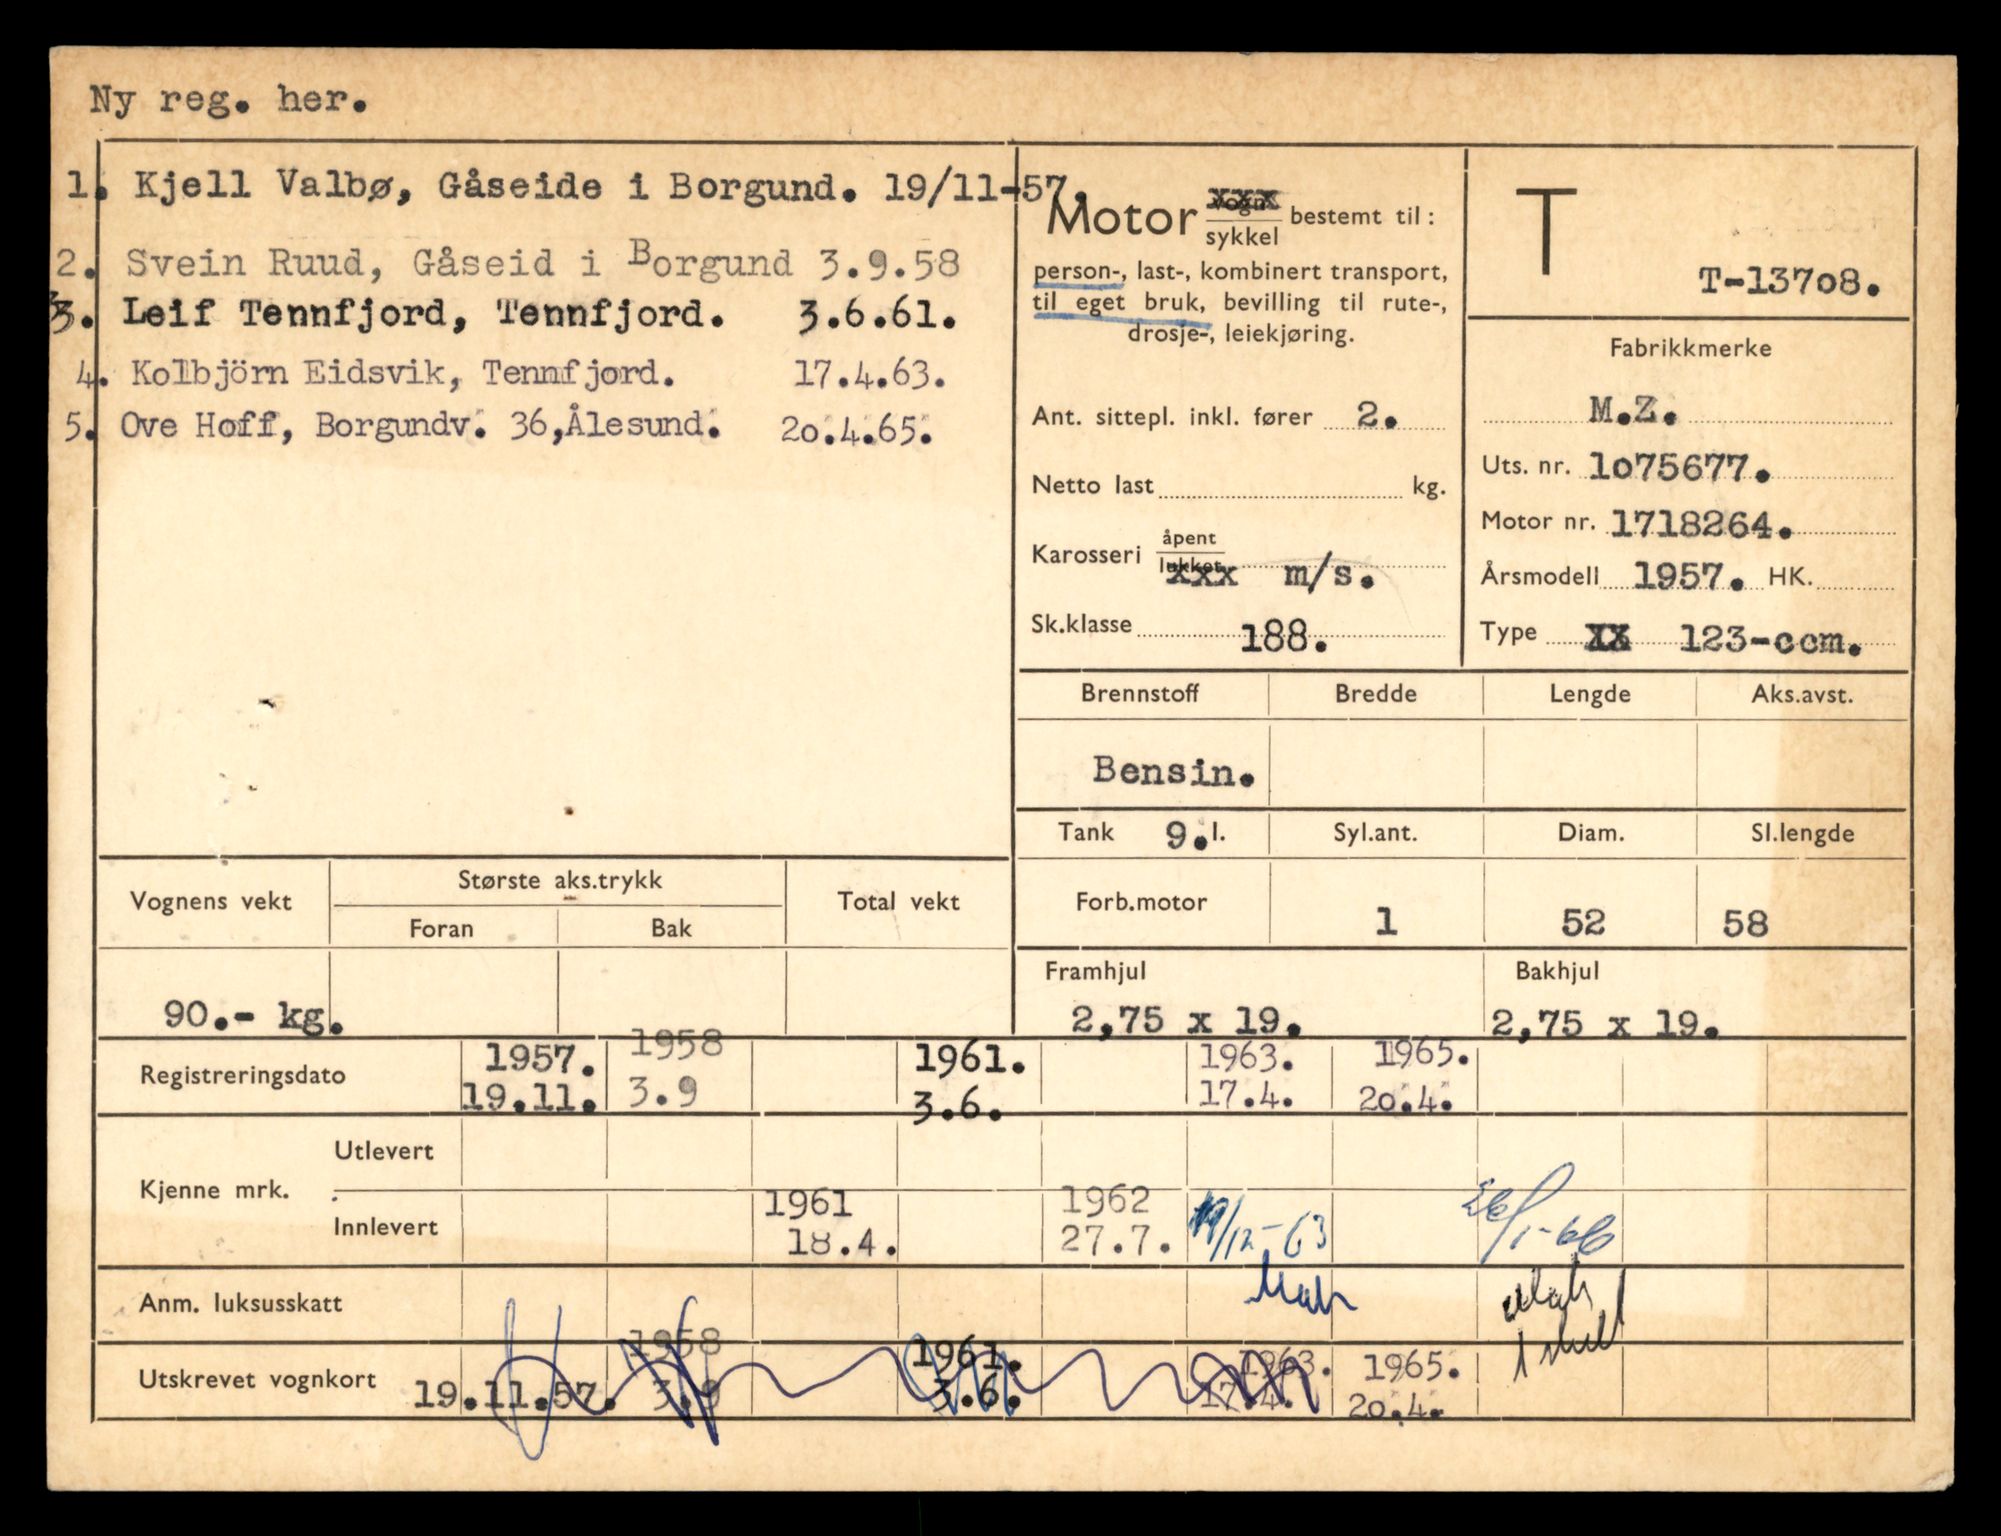 Ny reg. her.
1. Kjell Valbø, Gåseide i Borgund. 19/11-57.
2. Svein Ruud, Gåseid i Borgund 3.9.58
3. Leif Tennfjord, Tennfjord. 3.6.61.
4. Kolbjörn Eidsvik, Tennfjord. 17.4.63.
5. Ove Hoff, Borgundv. 36, Ålesund. 20.4.65.
Motor vogn xxx sykkel bestemt til:
person-, last-, kombinert transport,
til eget bruk, bevilling til rute-,
drosje-, leiekjøring.
Ant. sittepl. inkl. fører 2.
Netto last kg.
Karosseri åpent
lukket xxx m/s.
Sk.klasse 188.
T
T-13708.
Fabrikkmerke
M.Z.
Uts. nr. 1075677.
Motor nr. 1718264.
Årsmodell 1957. HK.
Type XX 123-ccm.
Brennstoff Bredde Lengde Aks.avst.
Bensin.
Tank 9.l. Syl.ant. Diam. Sl.lengde
Forb.motor 1 52 58
Framhjul Bakhjul
2,75 x 19. 2,75 x 19.
Vognens vekt Største aks.trykk Total vekt
Foran Bak
90.- kg.
Registreringsdato 1957. 1958 1961. 1963. 1965.
19.11. 3.9 3.6. 17.4. 20.4.
Kjenne mrk. Utlevert
Innlevert 1961 1962 19/12-63 26/1-66
18.4. 27.7.
Anm. luksusskatt
Utskrevet vognkort 1958 1961. 1963. 1965.
19.11.57. 3.9 3.6. 17.4. 20.4.
1 skilt